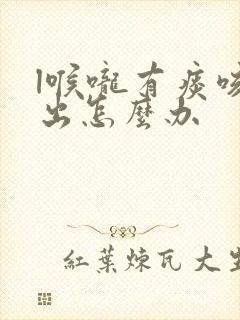 喉嚨有痰咳
出怎麼办
紅葉煉瓦大生